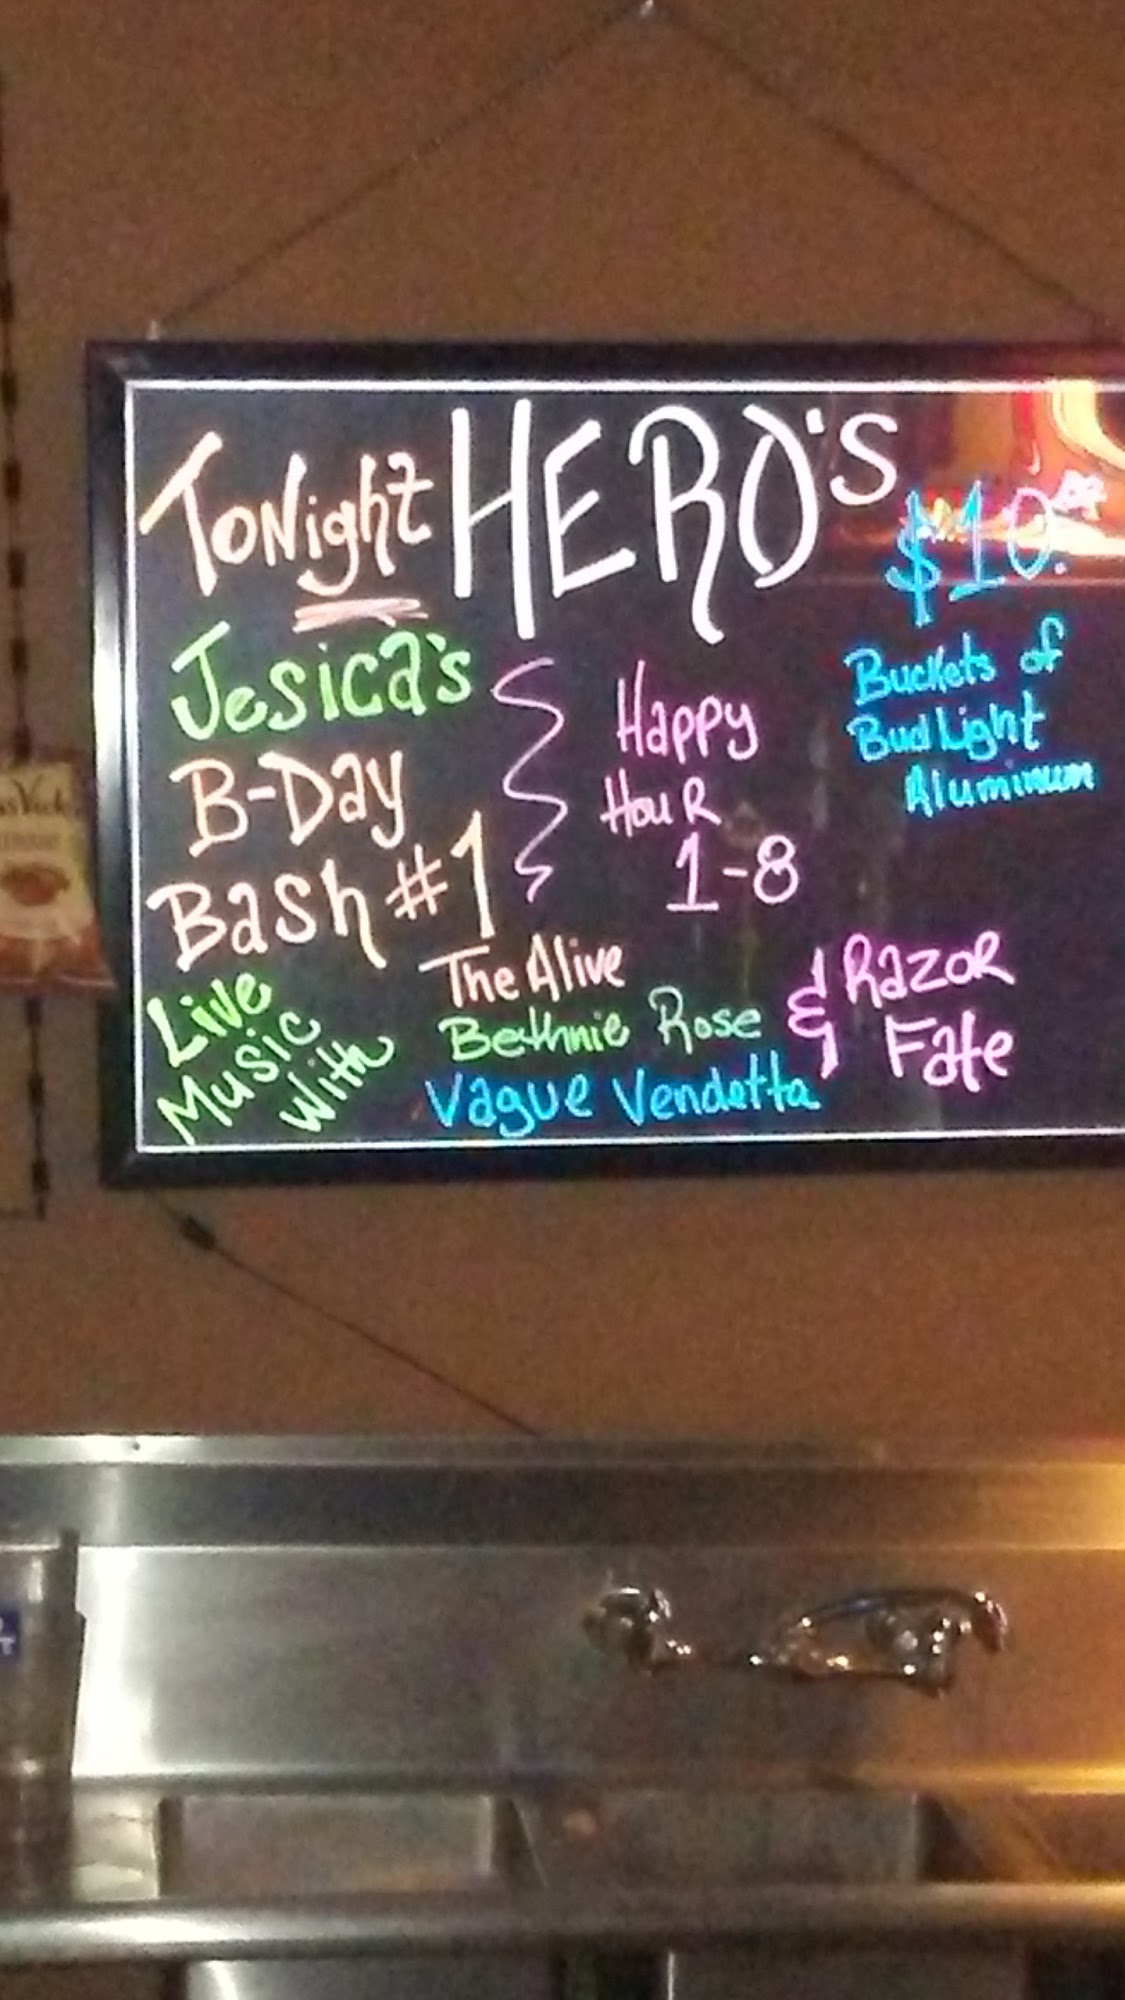 HERO'S
Tonight
Jesica's
B-Day
Bash #1
Happy
Hour
1-8
$10.
Buckets of
Bud Light
Aluminum
Live
Music
With
The Alive
Bethnie Rose
Vague Vendetta
& Razor
Fate